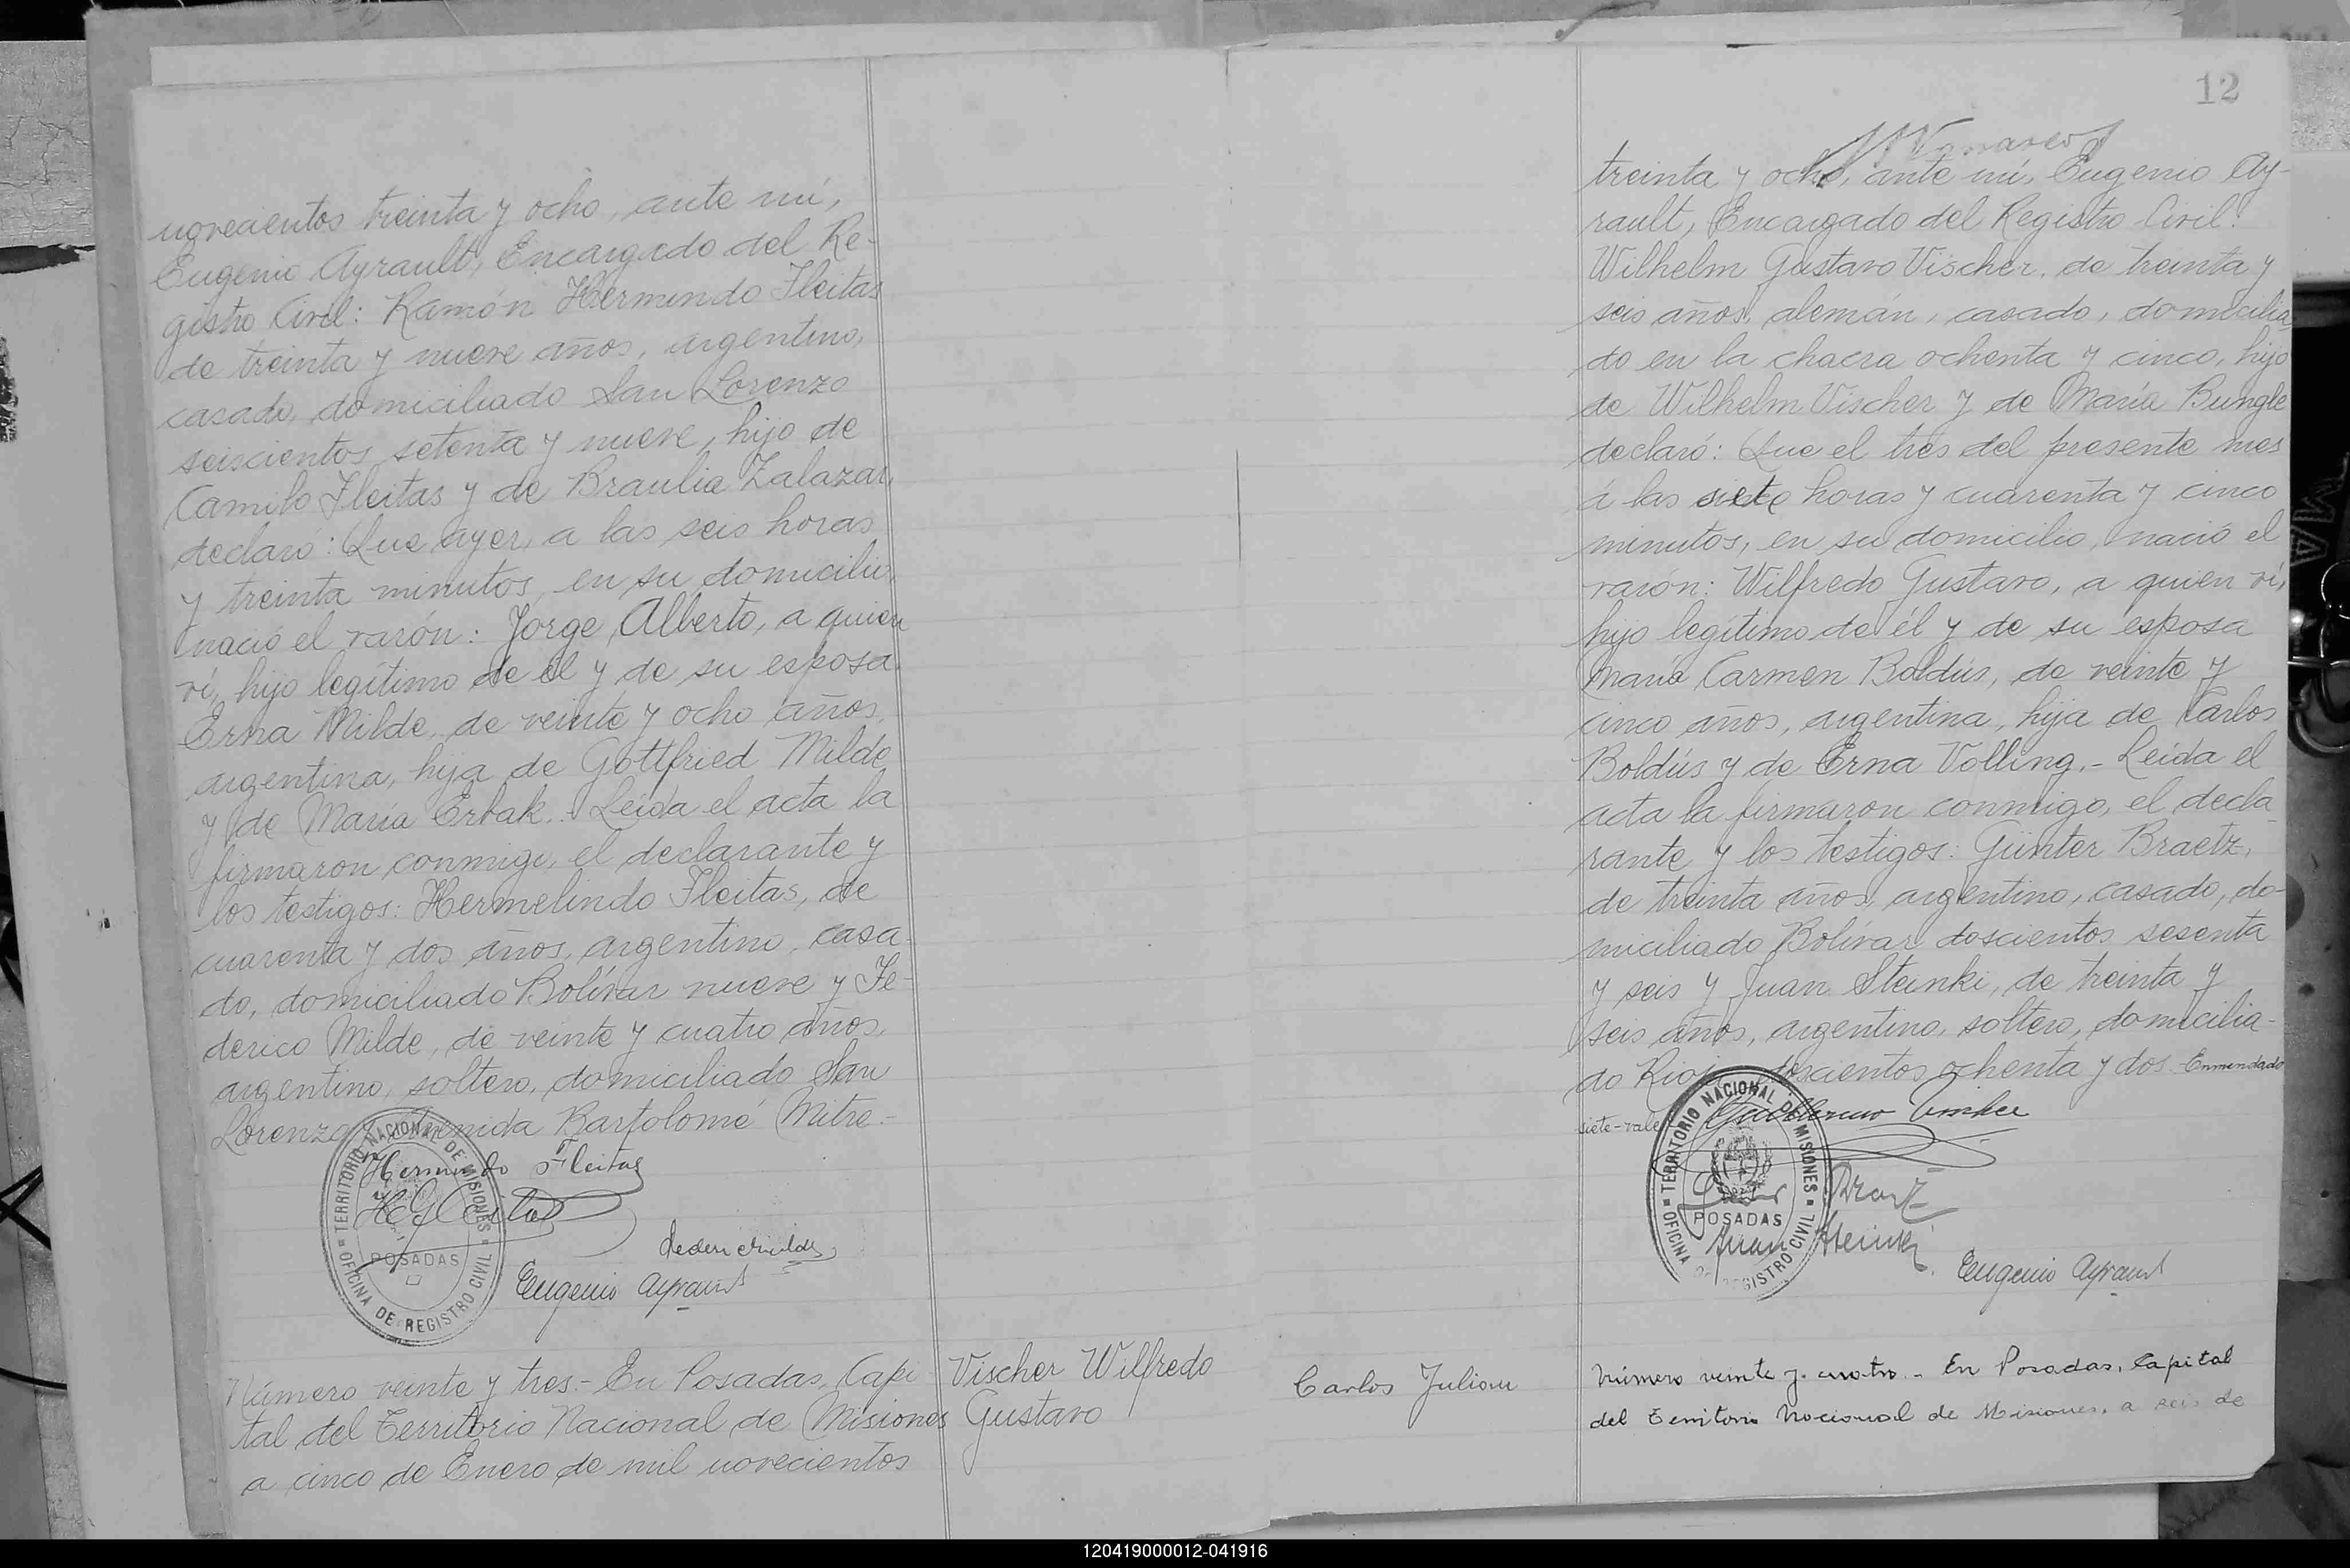 novecientos treinta y ocho, ante mí,
Eugenio Ayrault, Encargado del Re-
gistro Civil: Ramón Hermindo Fleitas
de treinta y nueve años, argentino,
casado, domiciliado San Lorenzo
seiscientos setenta y nueve, hijo de
Camilo Fleitas y de Braulia Zalazar,
declaró: Que ayer, a las seis horas
y treinta minutos, en su domicilio,
nació el varón: Jorge Alberto, a quien
ví, hijo legítimo de él y de su esposa
Erna Milde, de veinte y ocho años,
argentina, hija de Gottfried Milde
y de María Erbak.- Leída el acta la
firmaron conmigo, el declarante y
los testigos: Hermelindo Fleitas, de
cuarenta y dos años, argentino, casa-
do, domiciliado Bolívar nueve y Fe-
derico Milde, de veinte y cuatro años,
argentino, soltero, domiciliado San
Lorenzo y Avenida Bartolomé Mitre.-
Hermindo Fleitas
TERRITORIO NACIONAL DE MISIONES
POSADAS
OFICINA DE REGISTRO CIVIL
Eugenio Ayrault
Número veinte y tres.- En Posadas, Capi-
tal del Territorio Nacional de Misiones
a cinco de Enero de mil novecientos
Vischer Wilfredo
Gustavo
12
treinta y ocho, ante mí, Eugenio Ay-
rault, Encargado del Registro Civil:
Wilhelm Gustavo Vischer, de treinta y
seis años, alemán, casado, domicilia
do en la chacra ochenta y cinco, hijo
de Wilhelm Vischer y de María Bungle
declaró: Que el tres del presente mes
á las siete horas y cuarenta y cinco
minutos, en su domicilio, nació el
varón: Wilfredo Gustavo, a quien ví,
hijo legítimo de él y de su esposa
María Carmen Boldús, de veinte y
cinco años, argentina, hija de Carlos
Boldús y de Erna Volling.- Leída el
acta la firmaron conmigo, el decla-
rante y los testigos: Günter Braetz,
de treinta años, argentino, casado, do-
miciliado Bolívar doscientos sesenta
y seis y Juan Steinki, de treinta y
seis años, argentino, soltero, domicilia-
do Rioja doscientos ochenta y dos - Enmendado
siete-vale
TERRITORIO NACIONAL DE MISIONES
POSADAS
OFICINA DE REGISTRO CIVIL
Juan Steinki
Eugenio Ayrault
Carlos Julian
Número veinte y cuatro.- En Posadas, Capital
del Territorio Nacional de Misiones, a seis de
120419000012-041916